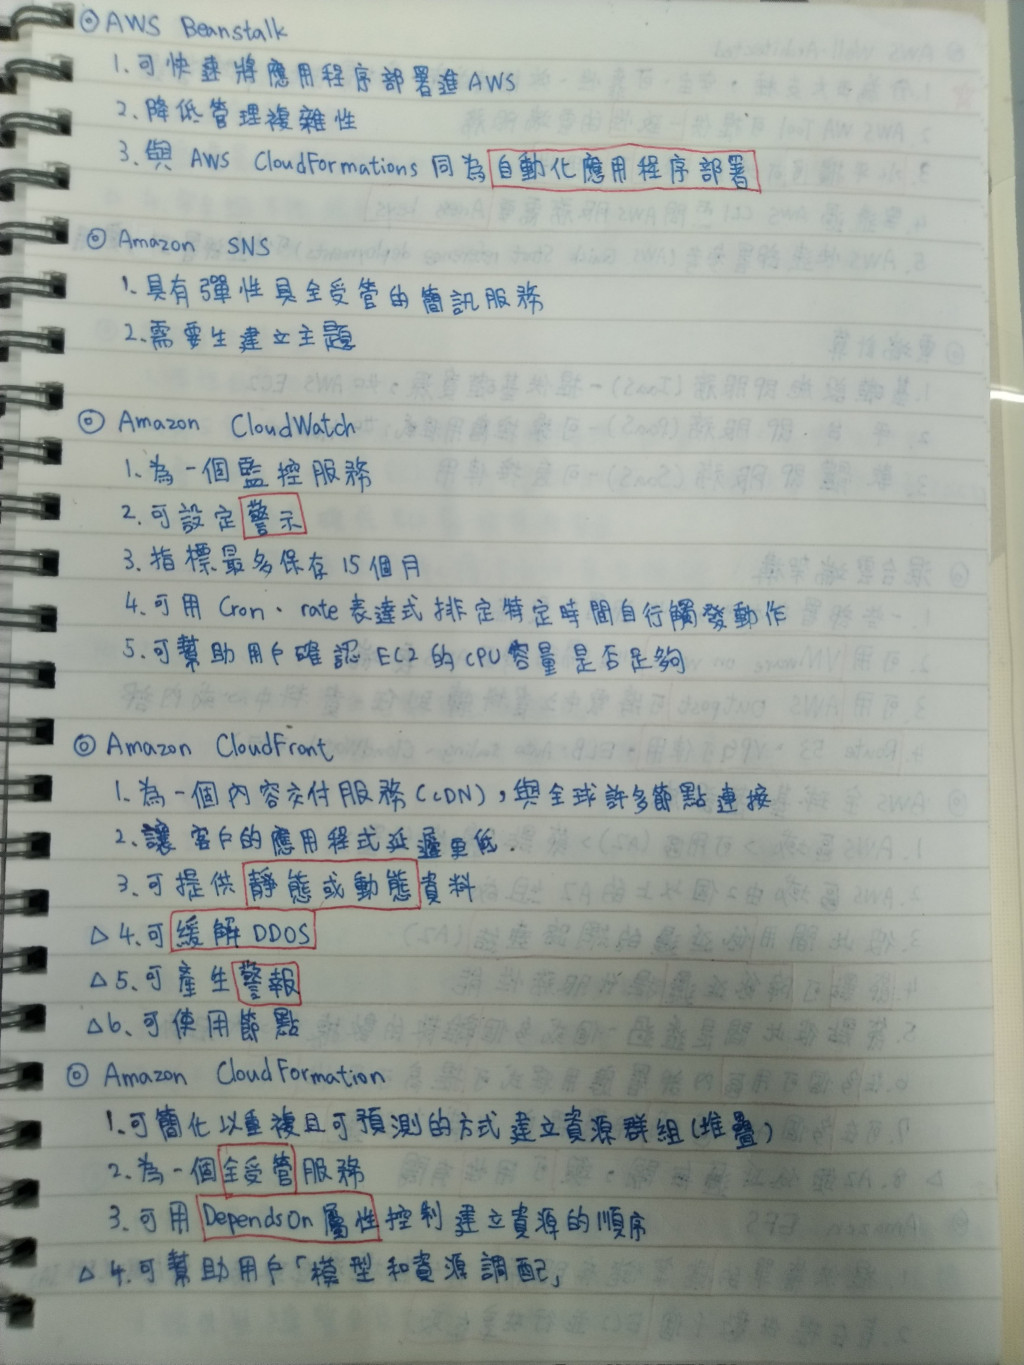 ◎ AWS Beanstalk
1. 可快速將應用程序部署進AWS
2. 降低管理複雜性
3. 與 AWS CloudFormations 同為自動化應用程序部署
◎ Amazon SNS
1. 具有彈性具全受管的簡訊服務
2. 需要先建立主題
◎ Amazon CloudWatch
1. 為一個監控服務
2. 可設定警示
3. 指標最多保存15個月
4. 可用 Cron、rate 表達式排定特定時間自行觸發動作
5. 可幫助用戶確認 EC2 的 CPU容量是否足夠
◎ Amazon CloudFront
1. 為一個內容交付服務(CDN),與全球許多節點連接
2. 讓客戶的應用程式延遲更低.
3. 可提供靜態或動態資料
△ 4. 可緩解 DDOS
△ 5. 可產生警報
△ 6. 可使用節點
◎ Amazon CloudFormation
1. 可簡化以重複且可預測的方式建立資源群組(堆疊)
2. 為一個全受管服務
3. 可用 DependsOn 屬性控制建立資源的順序
△ 4. 可幫助用戶「模型和資源調配」